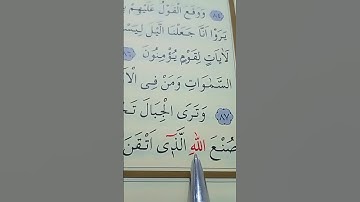 وَوَقَعَ الْقَوْلُ عَلَيْهِمْ
يَرَوْا اَنَّا جَعَلْنَا الَّيْلَ
لَاٰيَاتٍ لِقَوْمٍ يُؤْمِنُونَ
السَّمٰوَاتِ وَمَنْ فِى
٨٧ وَتَرَى الْجِبَالَ
صُنْعَ اللّٰهِ الَّذٓى اَتْقَنَ